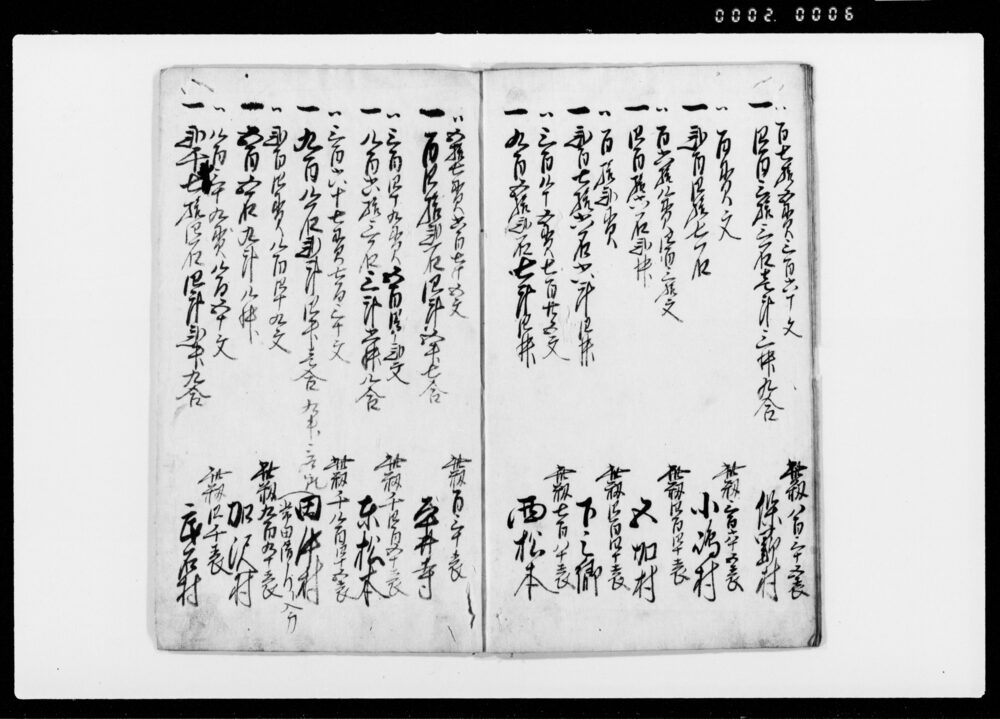 0002.0006
百七拾五貫三百六十文
一 四百三拾三石壱斗三升九合
籾八百三十五表
保野村
百貫文
一 弐百四拾七石
小嶋村
百六拾八貫四百三拾文
一 四百拾六石弐升
籾四百四十表
五加村
百拾弐貫
一 弐百七拾六石六斗四升
籾四百四十表
下之郷
三百八十五貫七百廿五文
一 九百五拾弐石七斗四升
籾七百八十表
西松本
五拾七貫六百七十五文
一 百四拾弐石四斗五升七合
籾百三十表
平井寺
三百四十九貫五百四十弐文
一 八百六拾三石三斗六升八合
籾千四百五十表
東松本
三百六十七貫七百三十文
一 九百八石弐斗四升壱合
籾千八百四十五表
田中村
弐百四貫八百四十九文
一 五百五石九斗八升
籾九百九十表
加沢村
八百三十九貫八百五十文
一 弐千七拾四石四斗弐升九合
籾四千表